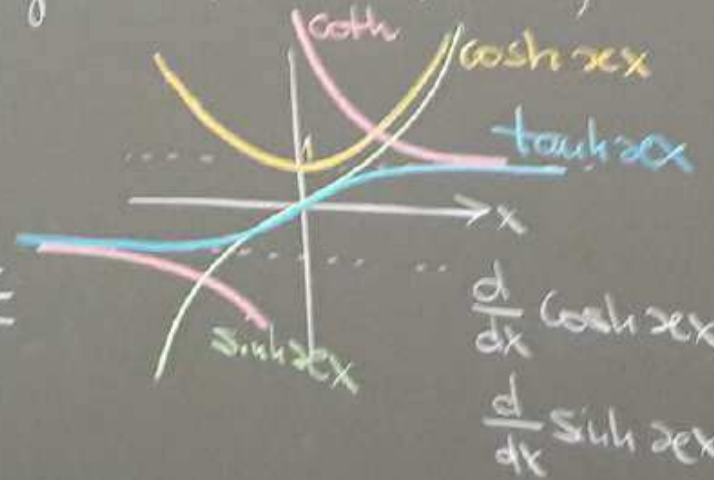 coth
cosh ϰx
1
tanh ϰx
x
sinh ϰx
d/dx cosh ϰx
d/dx sinh ϰx